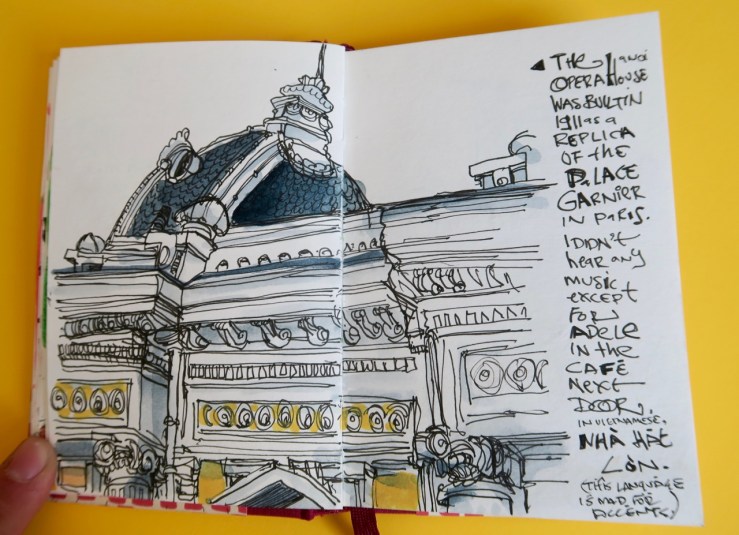 THE Hanoi
OPERA HOUSE
WAS BUILT IN
1911 as a
REPLICA
OF the
PALACE
GARNIER
IN PARIS.
I DIDN'T
hear any
music
except
FOR
ADELE
IN the
CAFÉ
Next
DOOR.
IN VIETNAMESE,
NHÀ HÁT
LỚN.
(THIS LANGUAGE
IS MAD FOR
ACCENTS)